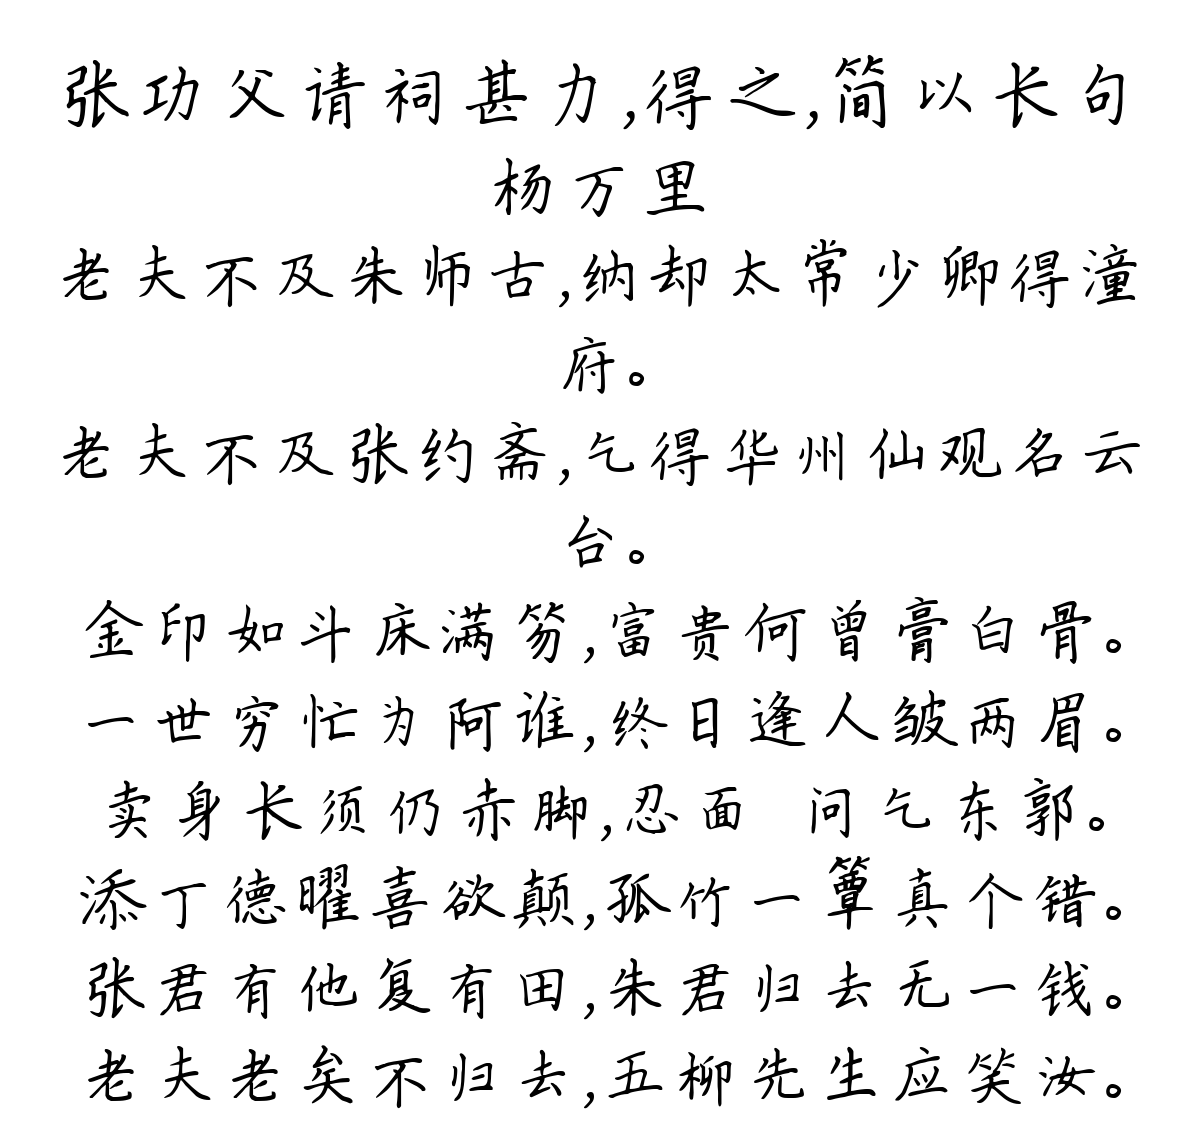 张功父请祠甚力,得之,简以长句
杨万里
老夫不及朱师古,纳却太常少卿得潼
府。
老夫不及张约斋,乞得华州仙观名云
台。
金印如斗床满笏,富贵何曾膏白骨。
一世穷忙为阿谁,终日逢人皱两眉。
卖身长须仍赤脚,忍面 问乞东郭。
添丁德曜喜欲颠,孤竹一簟真个错。
张君有他复有田,朱君归去无一钱。
老夫老矣不归去,五柳先生应笑汝。